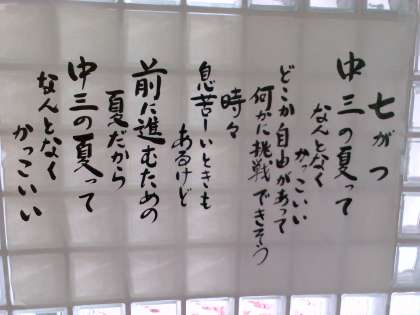 七がつ
中三の夏って
なんとなく
かっこいい
どこか自由があって
何かに挑戦できそう
時々
息苦しいときも
あるけど
前に進むための
夏だから
中三の夏って
なんとなく
かっこいい